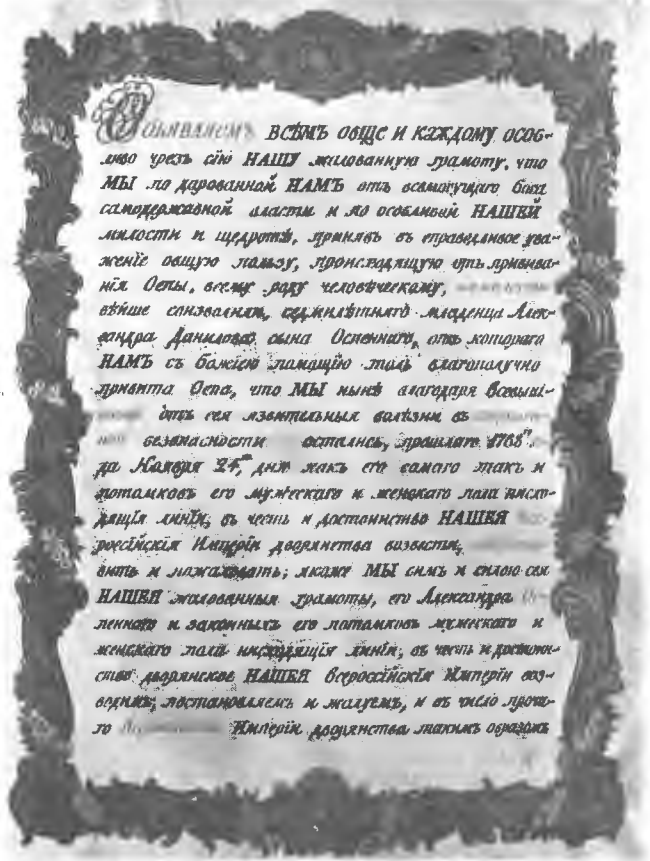 Объявляемъ ВСѢМЪ обще И КАЖДОМУ ОСОБ-
ливо чрезъ сію НАШУ жалованную грамоту, что
МЫ по дарованной НАМЪ отъ всемогущаго бога
самодержавной власти и по особливой НАШЕЙ
милости и щедротѣ, принявъ въ справедливое ува-
женіе общую пользу, происходящую отъ привива-
нія Оспы, всему роду человѣческому,
вѣйше соизволили, седмилѣтняго младенца Алек-
сандра Данилова сына Оспеннаго, отъ котораго
НАМЪ съ божіею помощію толь благополучно
привита Оспа, что МЫ нынѣ благодаря Всевыш-
отъ сея язвительныя болѣзни въ
безопасности остались, прошлаго 1768го
да Ноября 24го дня какъ его самаго такъ и
потомковъ его мужескаго и женскаго пола нисхо-
дящія линіи, въ честь и достоинство НАШЕЯ
россійскія Имперіи дворянства возвести,
вить и пожаловать; якоже МЫ симъ и силою сея
НАШЕЯ жалованныя грамоты, его Александра
леннаго и законныхъ его потомковъ мужескаго и
женскаго пола нисходящія линіи, въ честь и достоин-
ство дворянское НАШЕЯ Всероссійскія Имперіи воз-
водимъ, постановляемъ и жалуемъ, и въ число проча-
го Имперіи дворянства такимъ образомъ